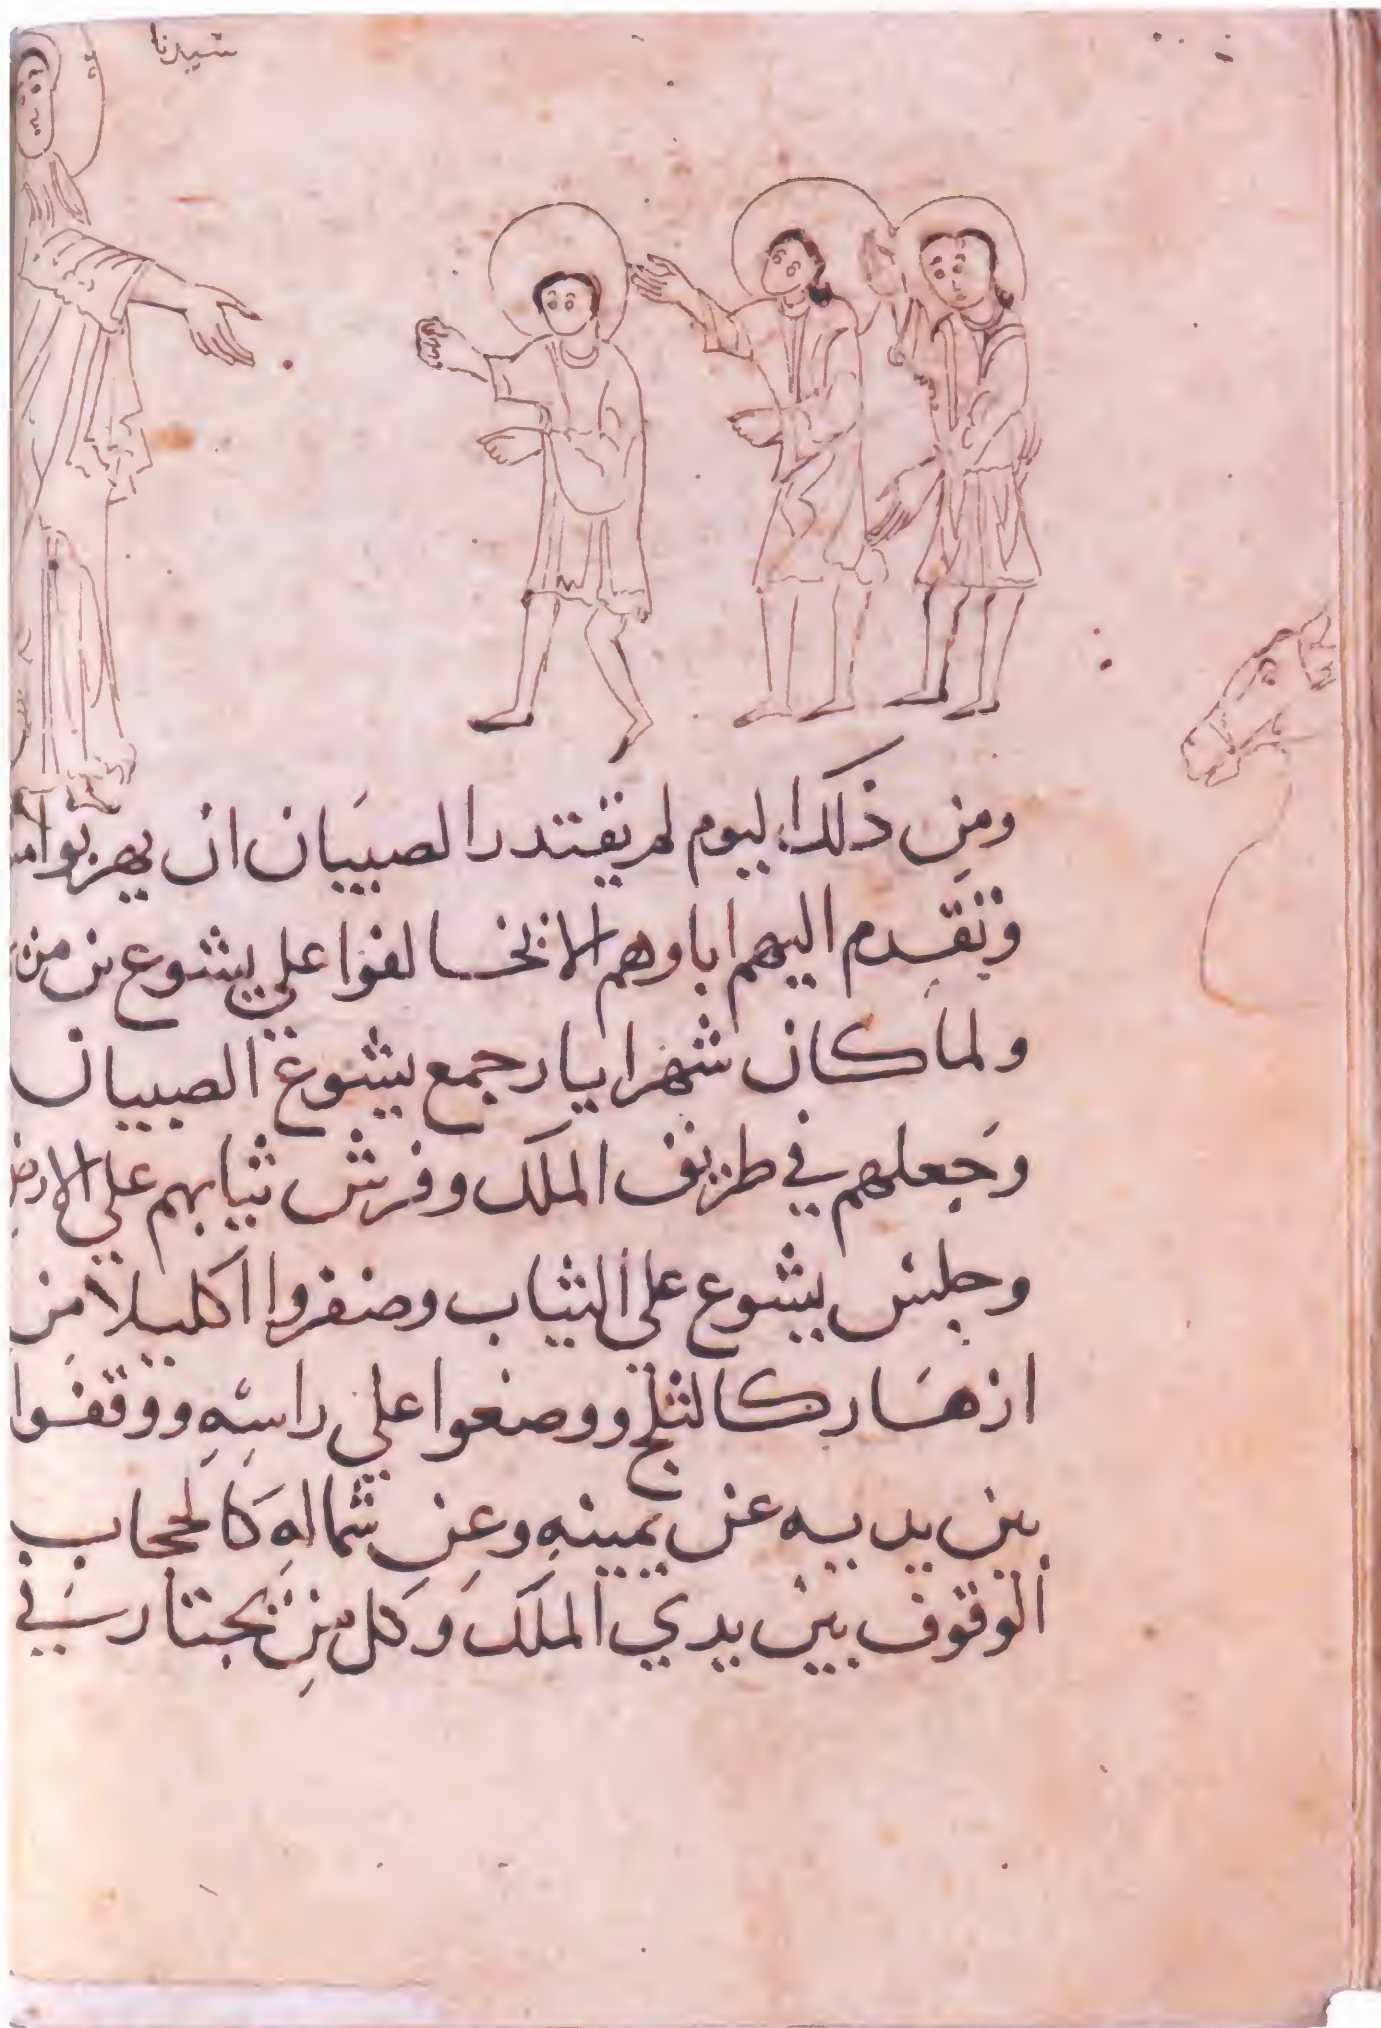 سيدنا
ومن ذلك اليوم لم يقتدر الصبيان ان يهربوا
وتقدم اليهم اباوهم الا يخالفوا على يشوع بن
ولما كان شهر ايار جمع يشوع الصبيان
وجعلهم في طريق الملك وفرش ثيابهم على الارض
وجلس يشوع على الثياب وضفروا اكليلا من
ازهار كالثلج ووضعوا على راسه ووقفوا
بين يديه عن يمينه وعن شماله كالحجاب
الوقوف بين يدي الملك وكل من يجتار